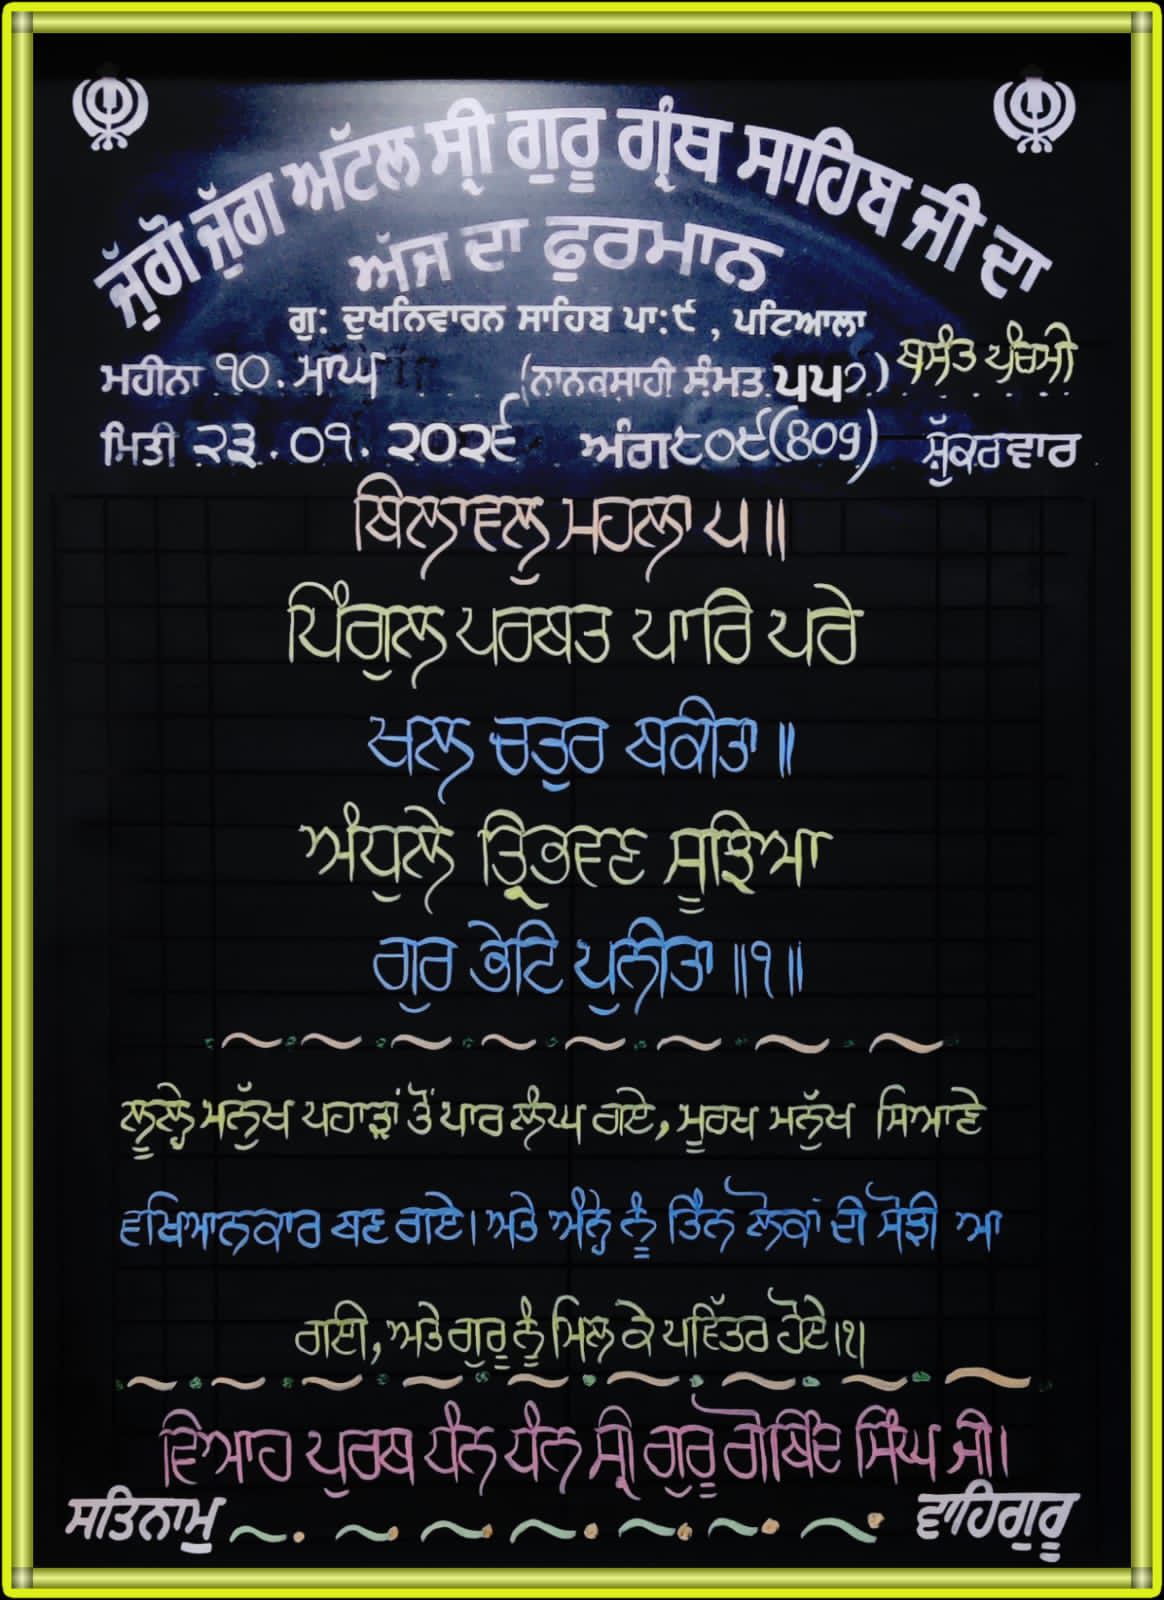 ਜੁੱਗੋ ਜੁੱਗ ਅਟੱਲ ਸ੍ਰੀ ਗੁਰੂ ਗ੍ਰੰਥ ਸਾਹਿਬ ਜੀ ਦਾ
ਅੱਜ ਦਾ ਫੁਰਮਾਨ
ਗੁ: ਦੁਖਨਿਵਾਰਨ ਸਾਹਿਬ ਪਾ:੯, ਪਟਿਆਲਾ
ਮਹੀਨਾ ੧੦. ਮਾਘ (ਨਾਨਕਸਾਹੀ ਸੰਮਤ ੫੫੭) ਬਸੰਤ ਪੰਚਮੀ
ਮਿਤੀ ੨੩.੦੧.੨੦੨੬ ਅੰਗ ੮੦੯(809) ਸ਼ੁੱਕਰਵਾਰ
ਬਿਲਾਵਲੁ ਮਹਲਾ ੫॥
ਪਿੰਗੁਲ ਪਰਬਤ ਪਾਰਿ ਪਰੇ
ਖਲ ਚਤੁਰ ਬਕੀਤਾ॥
ਅੰਧੁਲੇ ਤ੍ਰਿਭਵਣ ਸੂਝਿਆ
ਗੁਰ ਭੇਟਿ ਪੁਨੀਤਾ॥੧॥
ਲੂਲ੍ਹੇ ਮਨੁੱਖ ਪਹਾੜਾਂ ਤੋਂ ਪਾਰ ਲੰਘ ਗਏ, ਮੂਰਖ ਮਨੁੱਖ ਸਿਆਣੇ
ਵਖਿਆਨਕਾਰ ਬਣ ਗਏ। ਅਤੇ ਅੰਨ੍ਹੇ ਨੂੰ ਤਿੰਨ ਲੋਕਾਂ ਦੀ ਸੋਝੀ ਆ
ਗਈ, ਅਤੇ ਗੁਰੂ ਨੂੰ ਮਿਲ ਕੇ ਪਵਿੱਤਰ ਹੋਏ।੧।
ਵਿਆਹ ਪੁਰਬ ਧੰਨ ਧੰਨ ਸ੍ਰੀ ਗੁਰੂ ਗੋਬਿੰਦ ਸਿੰਘ ਜੀ।
ਸਤਿਨਾਮੁ ਵਾਹਿਗੁਰੂ